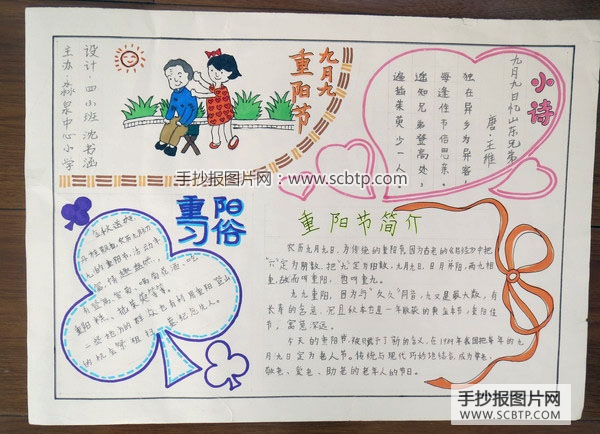 设计:四小班沈书涵
主办:淼泉中心小学
九月九
重阳节
小诗
九月九日忆山东兄弟
唐·王维
独在异乡为异客,
每逢佳节倍思亲。
遥知兄弟登高处,
遍插茱萸少一人。
手抄报图片网:www.scbtp.com
重阳
习俗
金秋送爽
九的重阳节,活动丰
富,情趣盎然,
有登高、赏菊、喝菊花酒、吃
重阳糕、插茱萸等等。
重阳节简介
农历九月九日,为传统的重阳节。因为古老的《易经》中把
“六”定为阴数,把“九”定为阳数,九月九日,日月并阳,两九相
重,故而叫重阳,也叫重九。
九九重阳,因为与“久久”同音,九又是最大数,有
长寿的含意,况且秋季也是一年收获的黄金季节,重阳佳
节,寓意深远。
今天的重阳节,被赋予了新的含义,在1989年我国把每年的九
月九日定为老人节。传统与现代巧妙地结合,成为尊老、
敬老、爱老、助老的老年人的节日。
手抄报图片网
WWW.SCBTP.COM